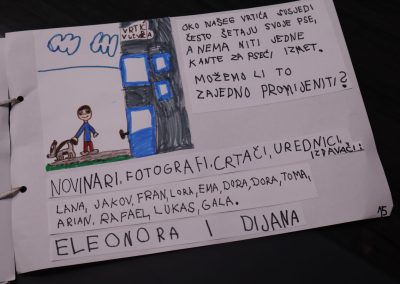 VRTIĆ
OKO NAŠEG VRTIĆA SUSJEDI
ČESTO ŠETAJU SVOJE PSE,
A NEMA NITI JEDNE
KANTE ZA PSEĆI IZMET.
MOŽEMO LI TO
ZAJEDNO PROMIJENITI?
NOVINARI, FOTOGRAFI, CRTAČI, UREDNICI,
IZDAVAČI:
LANA, JAKOV, FRAN, LORA, EMA, DORA, DORA, TOMA,
ARIAN, RAFAEL, LUKAS, GALA.
ELEONORA I DIJANA